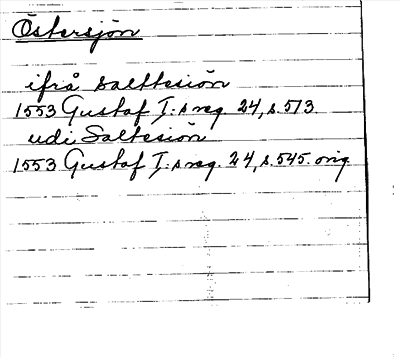 Östersjön
ifrå salttesiön
1553 Gustaf I:s reg. 24, s. 513
udi Saltesiön
1553 Gustaf I:s reg. 24, s. 545. orig